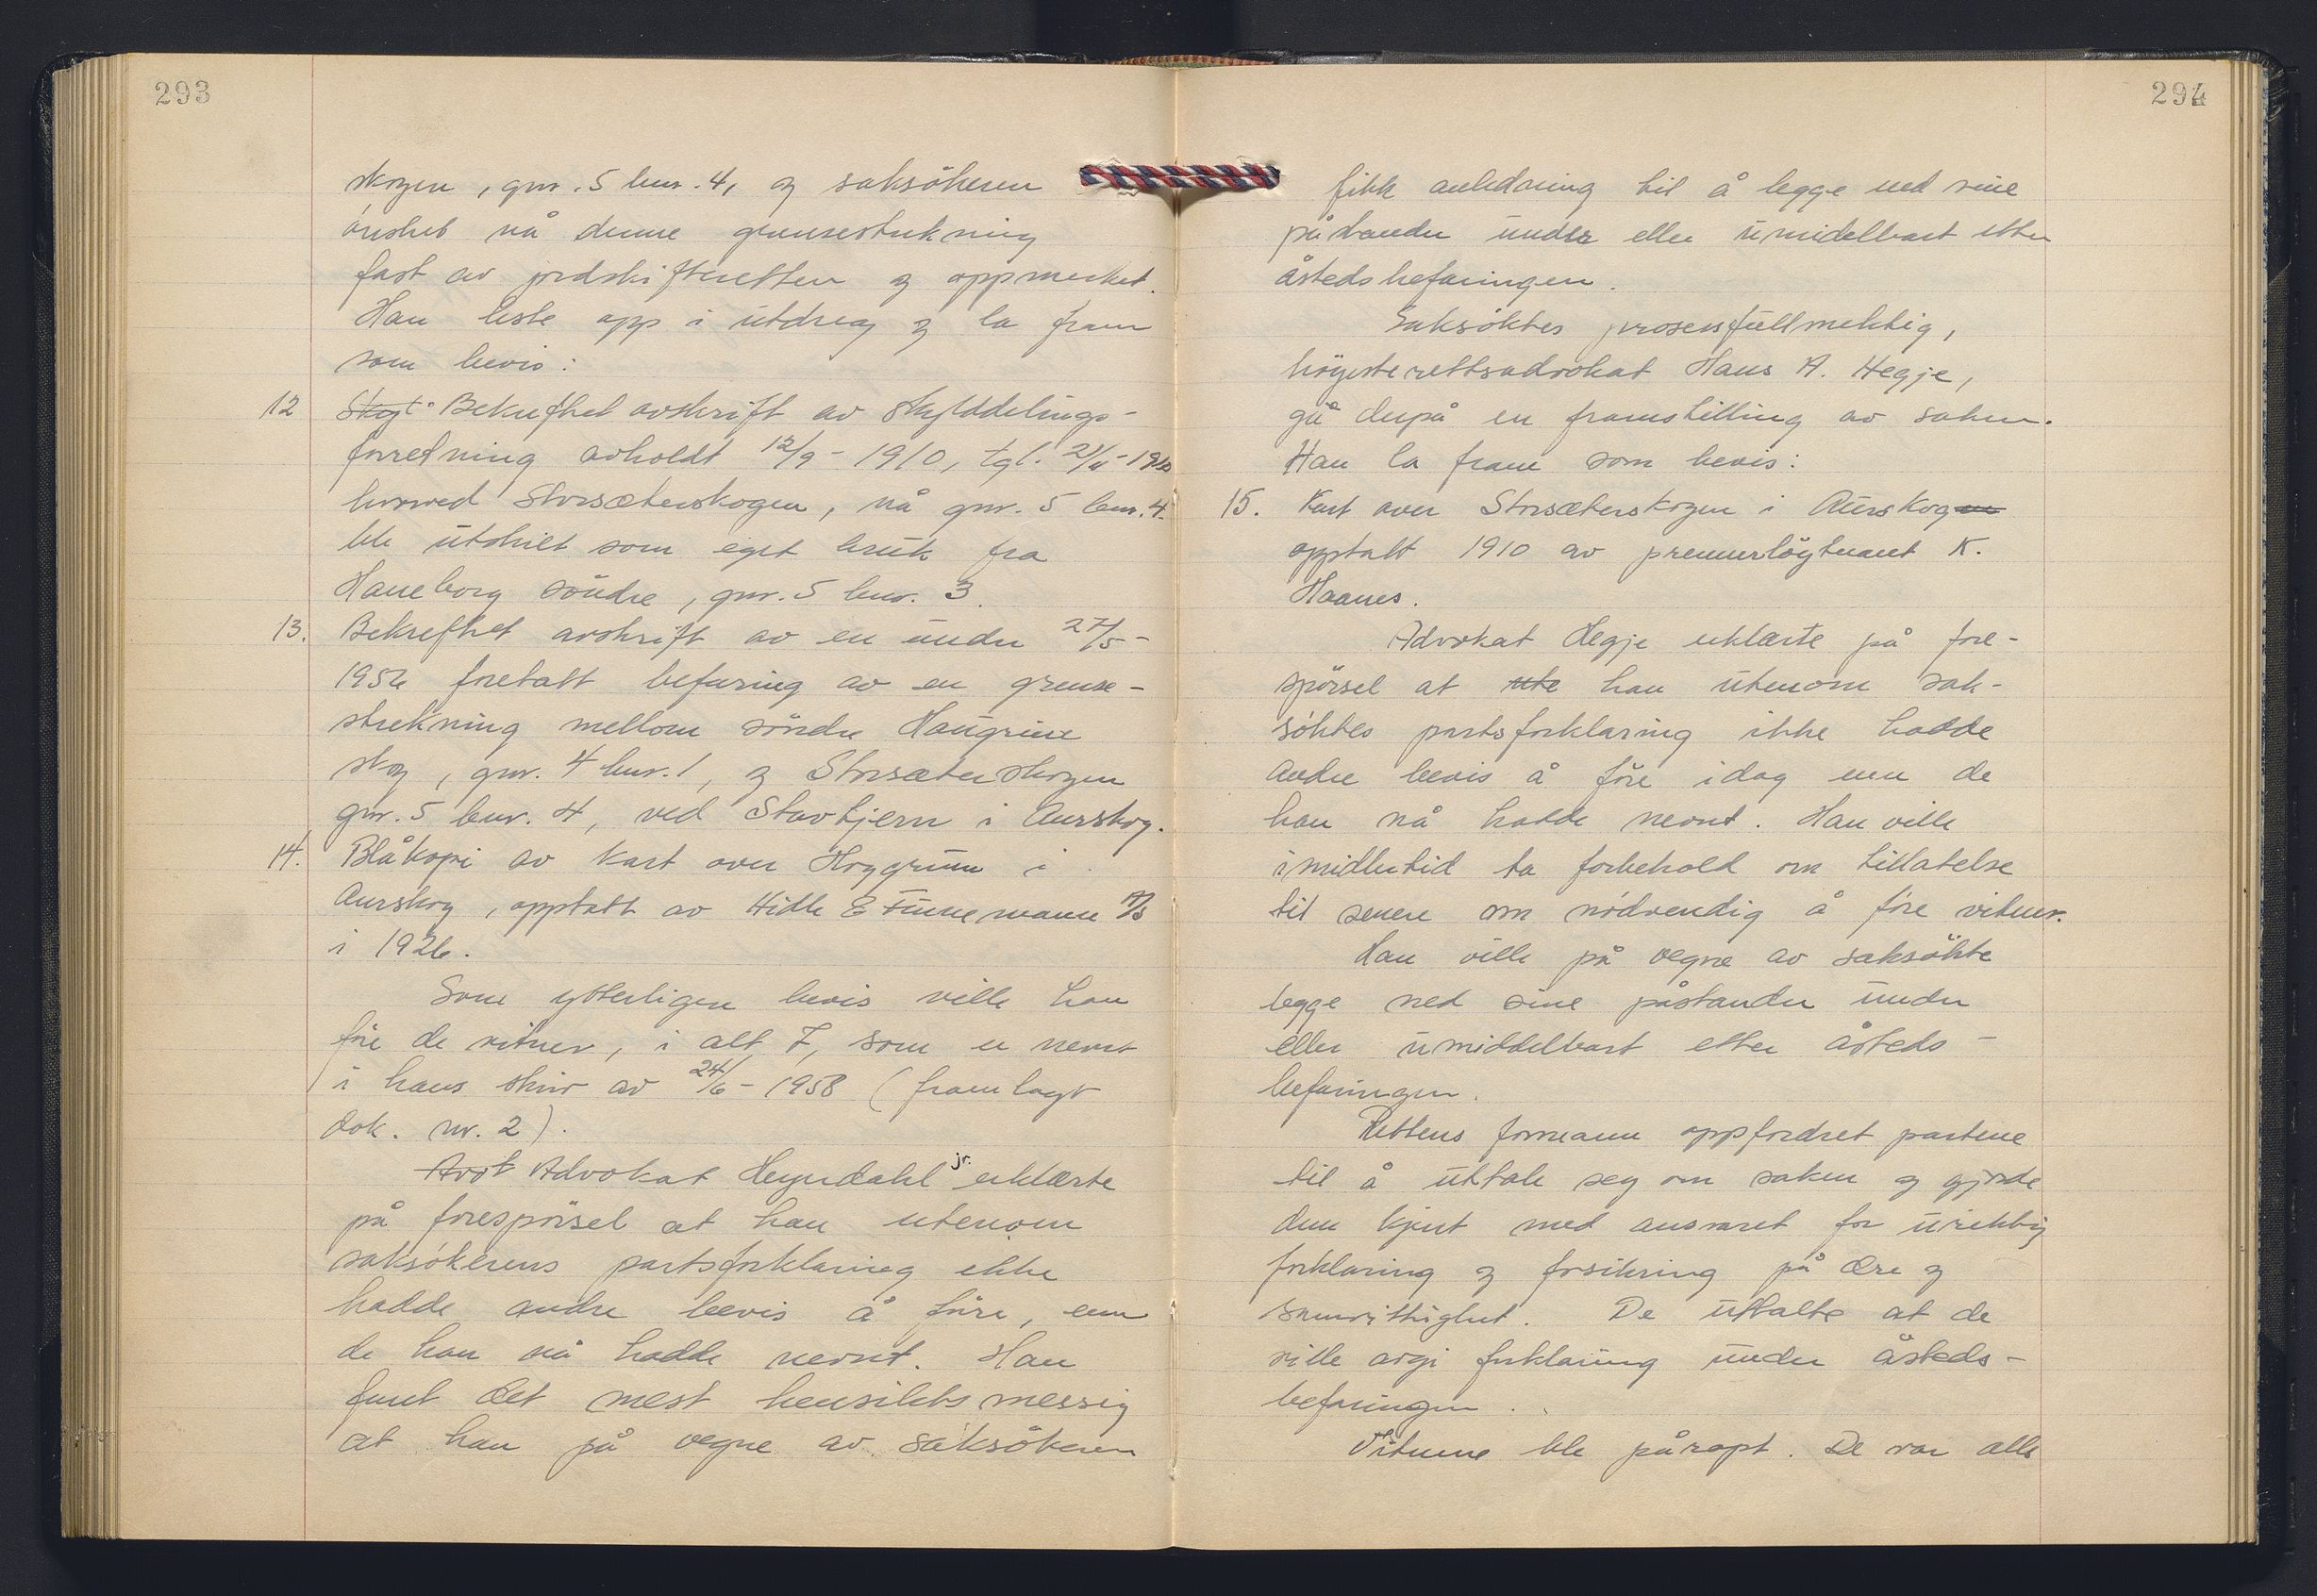 293
skogen, gnr. 5 bnr. 4, og saksökeren
önsket nå denne grensestrekning
fast av jordskifteretten og oppmerket.
Han leste opp i utdrag og la fram
som bevis:
12 Skyl Bekreftet avskrift av skylddelings-
forretning avholdt 12/9 - 1910, tgl. 21/11 - 1910
hvorved Storsæterskogen, nå gnr. 5 bnr. 4.
ble utskilt som eget bruk fra
Haneborg söndre, gnr. 5 bnr. 3.
13. Bekreftet avskrift av en under 27/5 -
1954 foretatt befaring av en grense-
strekning mellom söndre Haugrim
skog, gnr. 4 bnr. 1, og Storsæterskogen
gnr. 5 bnr. 4, ved Stavtjern i Aurskog.
14. Blåkopi av kart over Hoggrim i
Aurskog, opptatt av Hidle & Finnemann A/S
i 1926.
Som ytterligere bevis ville han
före de vitner, i alt 7, som er nevnt
i hans skriv av 24/6 - 1958 (framlagt
dok. nr. 2).
Avok Advokat Heyerdahl jr. erklærte
på forespörsel at han utenom
saksökerens partsforklaring ikke
hadde andre bevis å före, enn
de han nå hadde nevnt. Han
funt det mest hensiktsmessig
at han på vegne av saksökeren
294
fikk anledning til å legge ned sine
påstander under eller umidelbart etter
åstedsbefaringen.
Saksöktes prosessfullmektig,
höyesterettsadvokat Hans A. Hegje,
ga derpå en framstilling av saken.
Han la fram som bevis:
15. Kart over Storsæterskogen i Aurskogen
opptatt 1910 av premierlöytnant K.
Haanes.
Advokat Hegje erklærte på fore-
spörsel at ute han utenom sak-
söktes partsforklaring ikke hadde
andre bevis å före idag enn de
han nå hadde nevnt. Han ville
imidlertid ta forbehold om tillatelse
til senere om nödvendig å före vitner.
Han ville på vegne av saksökte
legge ned sine påstander under
eller umiddelbart etter åsteds-
befaringen.
Rettens formann oppfordret partene
til å uttale seg om saken og gjorde
dem kjent med ansvaret for uriktig
forklaring og forsikring på ære og
samvittighet. De uttalte at de
ville avgi forklaring under åsteds-
befaringen.
Vitnene ble påropt. De var alle